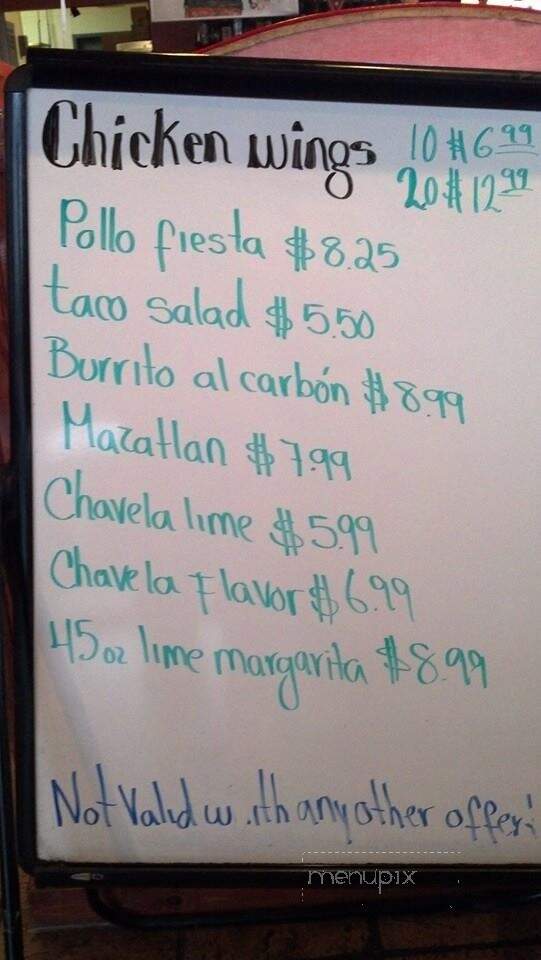 Chicken wings 10 $6.99
20 $12.99
Pollo fiesta $8.25
taco salad $5.50
Burrito al carbón $8.99
Mazatlan $7.99
Chavela lime $5.99
Chavela Flavor $6.99
45oz lime margarita $8.99
Not Valid with any other offer!
menupix